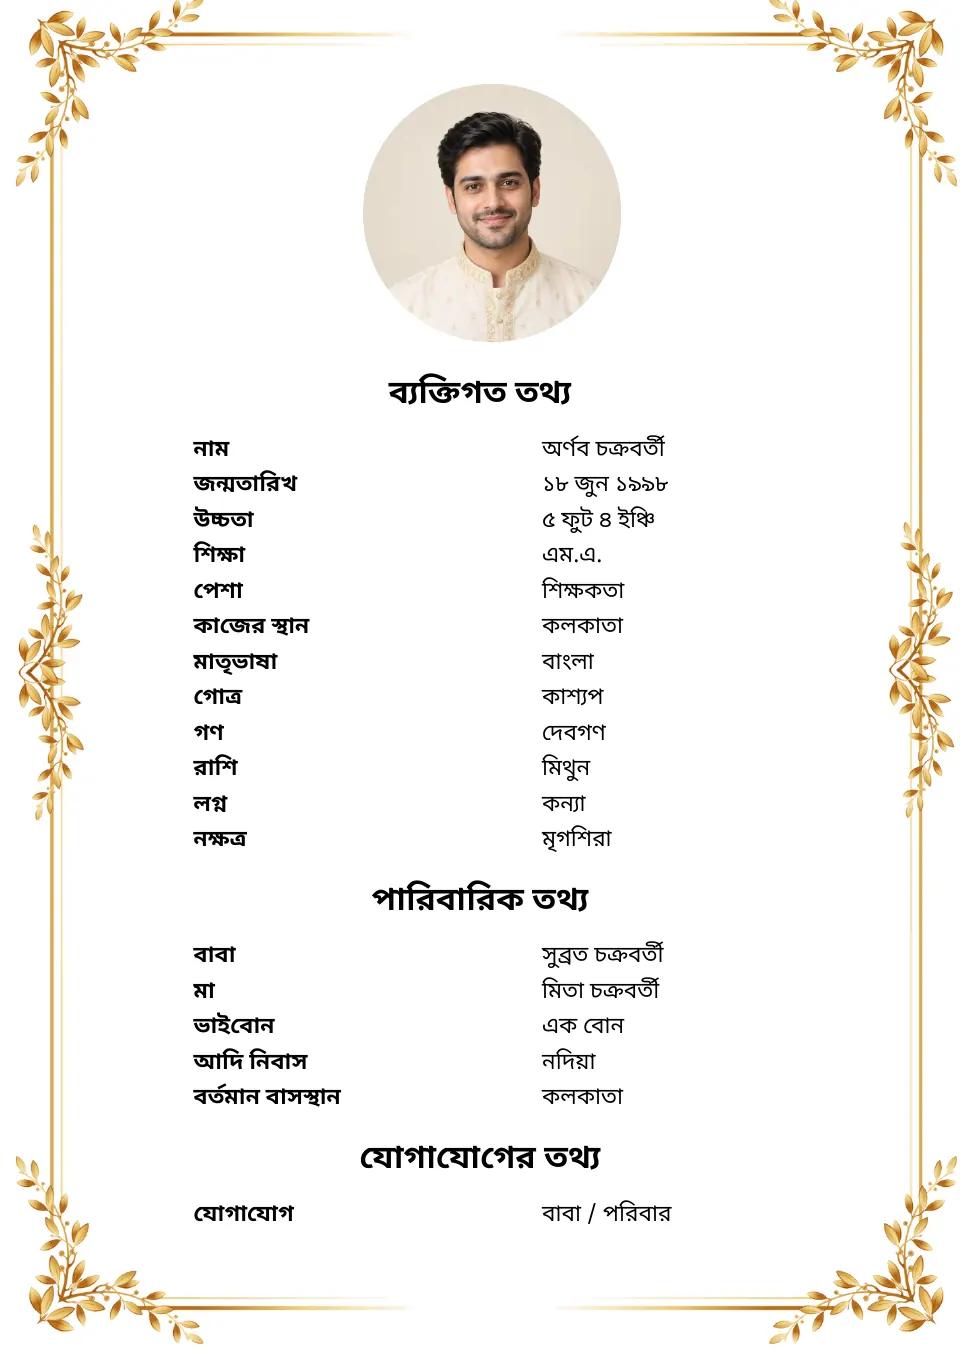 ব্যক্তিগত তথ্য
নাম অর্ণব চক্রবর্তী
জন্মতারিখ ১৮ জুন ১৯৯৮
উচ্চতা ৫ ফুট ৪ ইঞ্চি
শিক্ষা এম.এ.
পেশা শিক্ষকতা
কাজের স্থান কলকাতা
মাতৃভাষা বাংলা
গোত্র কাশ্যপ
গণ দেবগণ
রাশি মিথুন
লগ্ন কন্যা
নক্ষত্র মৃগশিরা
পারিবারিক তথ্য
বাবা সুব্রত চক্রবর্তী
মা মিতা চক্রবর্তী
ভাইবোন এক বোন
আদি নিবাস নদিয়া
বর্তমান বাসস্থান কলকাতা
যোগাযোগের তথ্য
যোগাযোগ বাবা / পরিবার